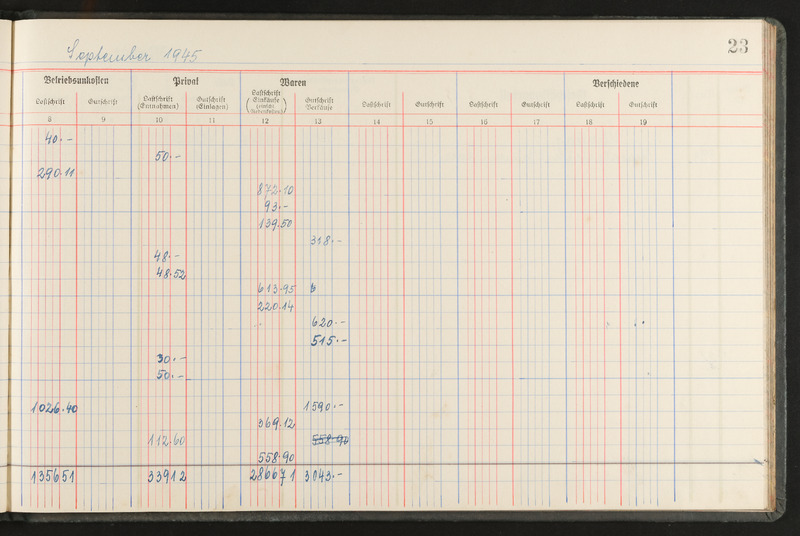 September 1945 23
Betriebsunkosten Privat Waren Verschiedene
Lastschrift Gutschrift Lastschrift (Entnahmen) Gutschrift (Einlagen) Lastschrift (Einkäufe Gutschrift Verkäufe Lastschrift Gutschrift Lastschrift Gutschrift Lastschrift Gutschrift
8 9 10 11 12 13 14 15 16 17 18 19
40.-
50.-
290.11
872.10
93.-
139.50
318.-
48.-
48.52
613.95
220.14
620.-
515.-
30.-
50.-
1026.40 1590.-
369.12
112.60 558.90
558.90
135651 33912 286671 3043.-